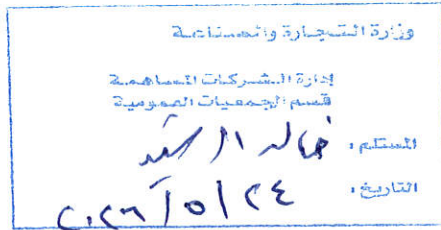 وزارة التجارة والصناعة
إدارة الشركات المساهمة
قسم الجمعيات العمومية
المستلم : خالد
التاريخ : ٢٤/٥/٢٠٢٦